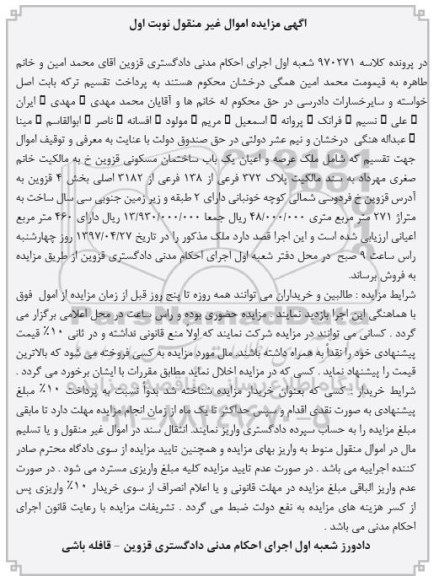 آگهی مزایده اموال غیر منقول نوبت اول
در پرونده کلاسه ۹۷۰۲۷۱ شعبه اول اجرای احکام مدنی دادگستری قزوین آقای محمد امین و خانم
طاهره به قیمومت محمد امین همگی درخشان محکوم هستند به پرداخت تقسیم ترکه بابت اصل
خواسته و سایرخسارات دادرسی در حق محکوم له خانم ها و آقایان محمد مهدی ▯ مهدی ▯ ایران
▯ علی ▯ نسیم ▯ فرانک ▯ پروانه ▯ اسمعیل ▯ مریم ▯ مولود ▯ افسانه ▯ ناصر ▯ ابوالقاسم ▯ مینا
▯ عبداله هنگی درخشان و نیم عشر دولتی در حق صندوق دولت با عنایت به معرفی و توقیف اموال
جهت تقسیم که شامل ملک عرصه و اعیان یک باب ساختمان مسکونی قزوین خ به مالکیت خانم
صغری مهرداد به سند مالکیت پلاک ۳۷۲ فرعی از ۱۳۸ فرعی از ۳۱۸۲ اصلی بخش ۴ قزوین به
آدرس قزوین خ فردوسی شمالی کوچه خونبانی دارای ۲ طبقه و زیر زمین جنوبی سی سال ساخت به
متراژ ۲۷۱ متر مربع متری ۴۸/۰۰۰/۰۰۰ ریال جمعا ۱۳/۹۳۰/۰۰۰/۰۰۰ ریال دارای ۴۶۰ متر مربع
اعیانی ارزیابی شده است و این اجرا قصد دارد ملک مذکور را در تاریخ ۱۳۹۷/۰۴/۲۷ روز چهارشنبه
راس ساعت ۹ صبح در محل دفتر شعبه اول اجرای احکام مدنی دادگستری قزوین از طریق مزایده
به فروش برساند.
شرایط مزایده : طالبین و خریداران می توانند همه روزه تا پنج روز قبل از زمان مزایده از امول فوق
با هماهنگی این اجرا بازدید نمایند . مزایده حضوری بوده و راس ساعت در محل اعلامی برگزار می
گردد . کسانی می توانند در مزایده شرکت نمایند که اولا منع قانونی نداشته و در ثانی ۱۰٪ قیمت
پیشنهادی خود را نقداً به همراه داشته باشند. مال مورد مزایده به کسی فروخته می شود که بالاترین
قیمت را پیشنهاد نماید . کسی که در مزایده اخلال نماید مطابق مقررات با ایشان برخورد می گردد .
شرایط خریدار : کسی که بعنوان خریدار مزایده شناخته شد بدواً نسبت به پرداخت ۱۰٪ مبلغ
پیشنهادی به صورت نقدی اقدام و سپس حداکثر تا یک ماه از زمان انجام مزایده مهلت دارد تا مابقی
مبلغ مزایده را به حساب سپرده دادگستری واریز نمایند. انتقال سند در اموال غیر منقول و یا تسلیم
مال در اموال منقول منوط به واریز بهای مزایده و همچنین تایید مزایده از سوی دادگاه محترم صادر
کننده اجراییه می باشد . در صورت عدم تایید مزایده کلیه مبلغ واریزی مسترد می شود . در صورت
عدم واریز الباقی مبلغ مزایده در مهلت قانونی و یا اعلام انصراف از سوی خریدار ۱۰٪ واریزی پس
از کسر هزینه های مزایده به نفع دولت ضبط می گردد . تشریفات مزایده با رعایت قانون اجرای
احکام مدنی می باشد .
دادورز شعبه اول اجرای احکام مدنی دادگستری قزوین – قافله باشی